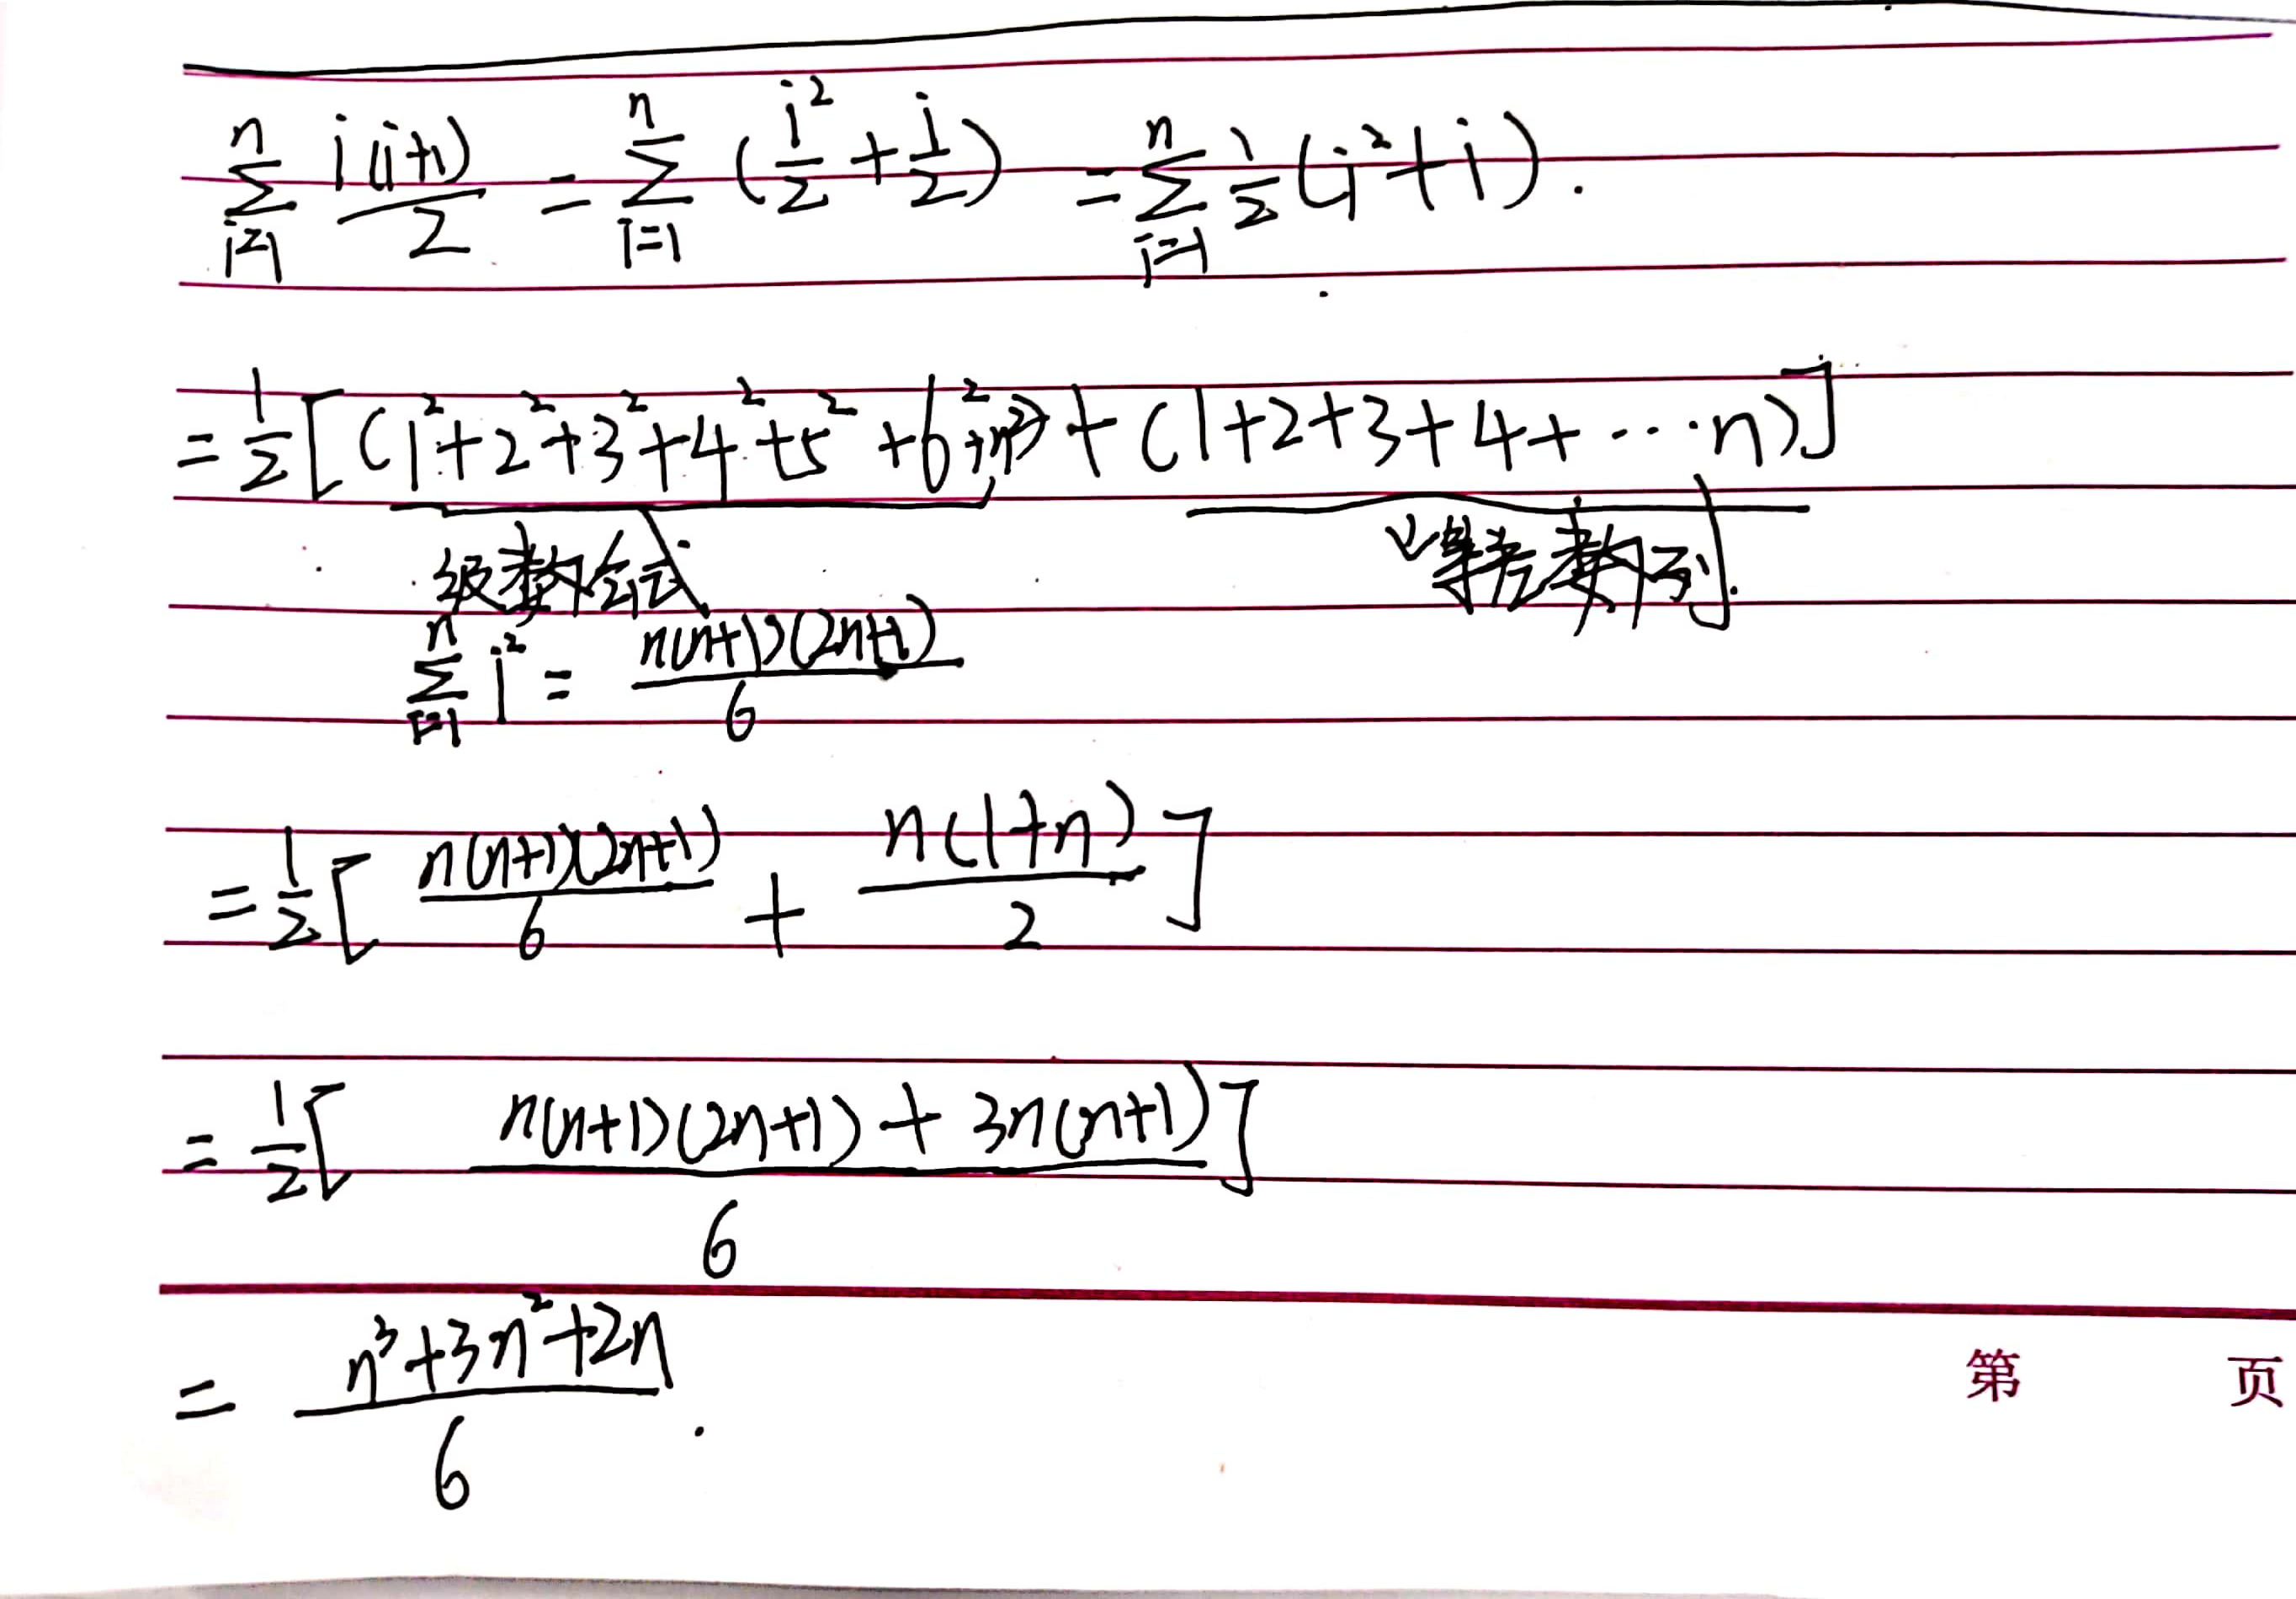 ∑_{i=1}^{n} i(i+1)/2 = ∑_{i=1}^{n} (i²/2 + i/2) = ∑_{i=1}^{n} 1/2 (i²+i).
= 1/2 [(1²+2²+3²+4²+5²+6²+n²) + (1+2+3+4+⋯n)]
级数公式 等差数列.
∑_{i=1}^{n} i² = n(n+1)(2n+1)/6
= 1/2 [ n(n+1)(2n+1)/6 + n(1+n)/2 ]
= 1/2 [ (n(n+1)(2n+1) + 3n(n+1))/6 ]
= (n³+3n²+2n)/6 .
第 页